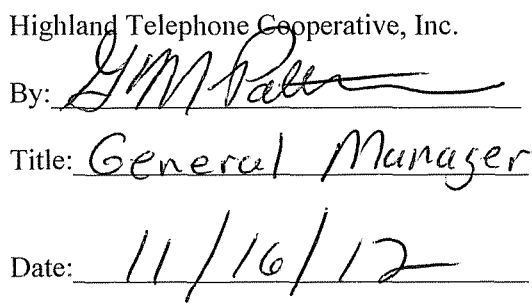 Highland Telephone Cooperative, Inc.
By:
Title: General Manager
Date: 11/16/12